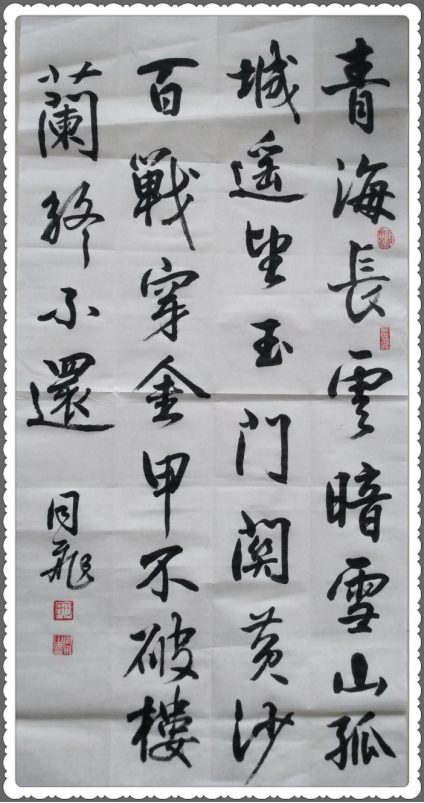 青海長雲暗雪山孤
城遥望玉門関黄沙
百戰穿金甲不破樓
蘭終不還
同飛